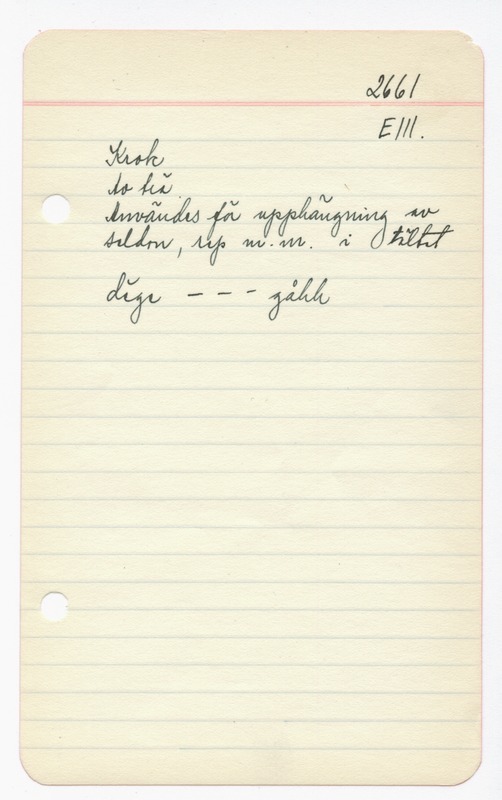 2661
E III.
Krok
Av trä
Användes för upphängning av
seldon, rep m.m. i tältet
děge - - - gåhh